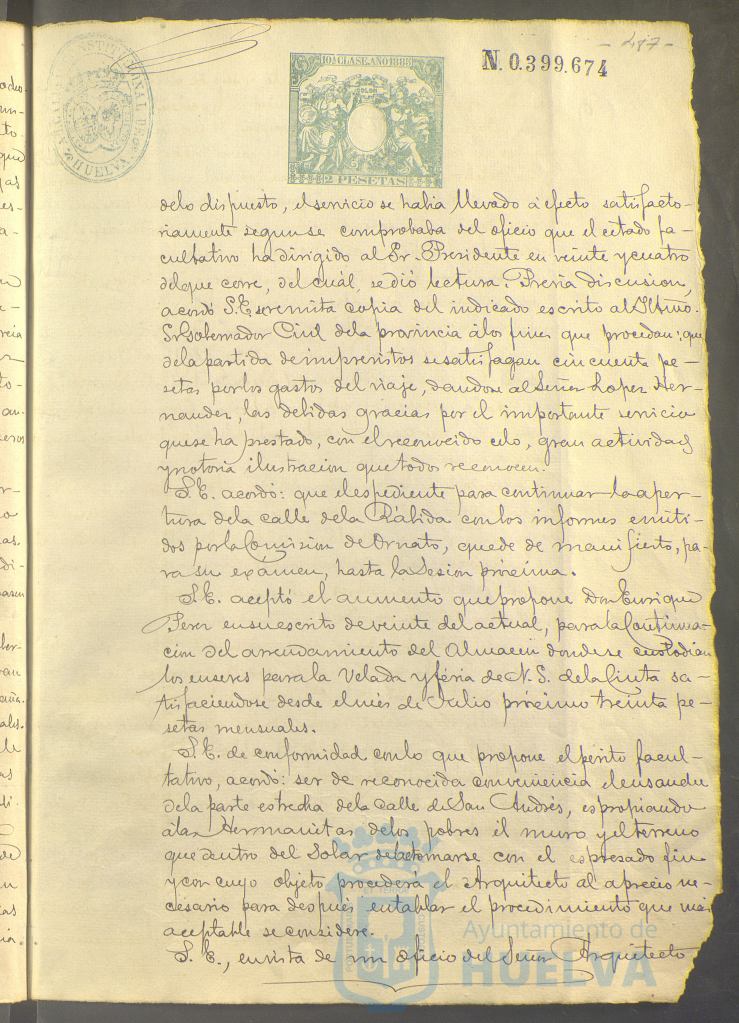 - 487 -
N. 0.399.674
10ª CLASE. AÑO 1888
2 PESETAS
HUELVA
delo dispuesto, el servicio se habia llevado á efecto satisfacto-
riamente segun se comprobaba del oficio que el citado fa-
cultativo ha dirigido al Sr. Presidente en veinte y cuatro
del que corre, del cuál, se dió lectura. Prévia discusion,
acordó S.E. se remita copia del indicado escrito al Iltmo.
Sr. Gobernador Civil dela provincia álos fines que procedan: que
dela partida de imprevistos se satisfagan cincuenta pe-
setas por los gastos del viaje, dandose al Señor Lopez Her-
nandez, las debidas gracias por el importante servicio
que se ha prestado, con el reconocido celo, gran actividad
y notoria ilustracion que todos reconocen.
S.E. acordó: que el espediente para continuar la aper-
tura dela calle dela Rábida con los informes emiti-
dos por la Comision de Ornato, quede de manifiesto, pa-
ra su exámen, hasta la Sesion próxima.
S.E. aceptó el aumento que propone Don Enrique
Perez en su escrito de veinte del actual, para la Continua-
cion del arrendamiento del Almacen donde se custodian
los enseres para la Velada y féria de N. S. dela Cinta sa-
tisfaciendose desde el més de Julio próximo treinta pe-
setas mensuales.
S.E. de conformidad con lo que propone el périto facul-
tativo, acordó: ser de reconocida conveniencia el ensanche
dela parte estrecha dela calle de San Andrés, espropiando
á las Hermanitas delos pobres el muro y el terreno
que dentro del Solar debe tomarse con el espresado fin
y con cuyo objeto procederá el Arquitecto al aprecio ne-
cesario para despues entablar el procedimiento que mas
aceptable se considere.
S.E., en vista de un oficio del Señor Arquitecto
Ayuntamiento de
HUELVA